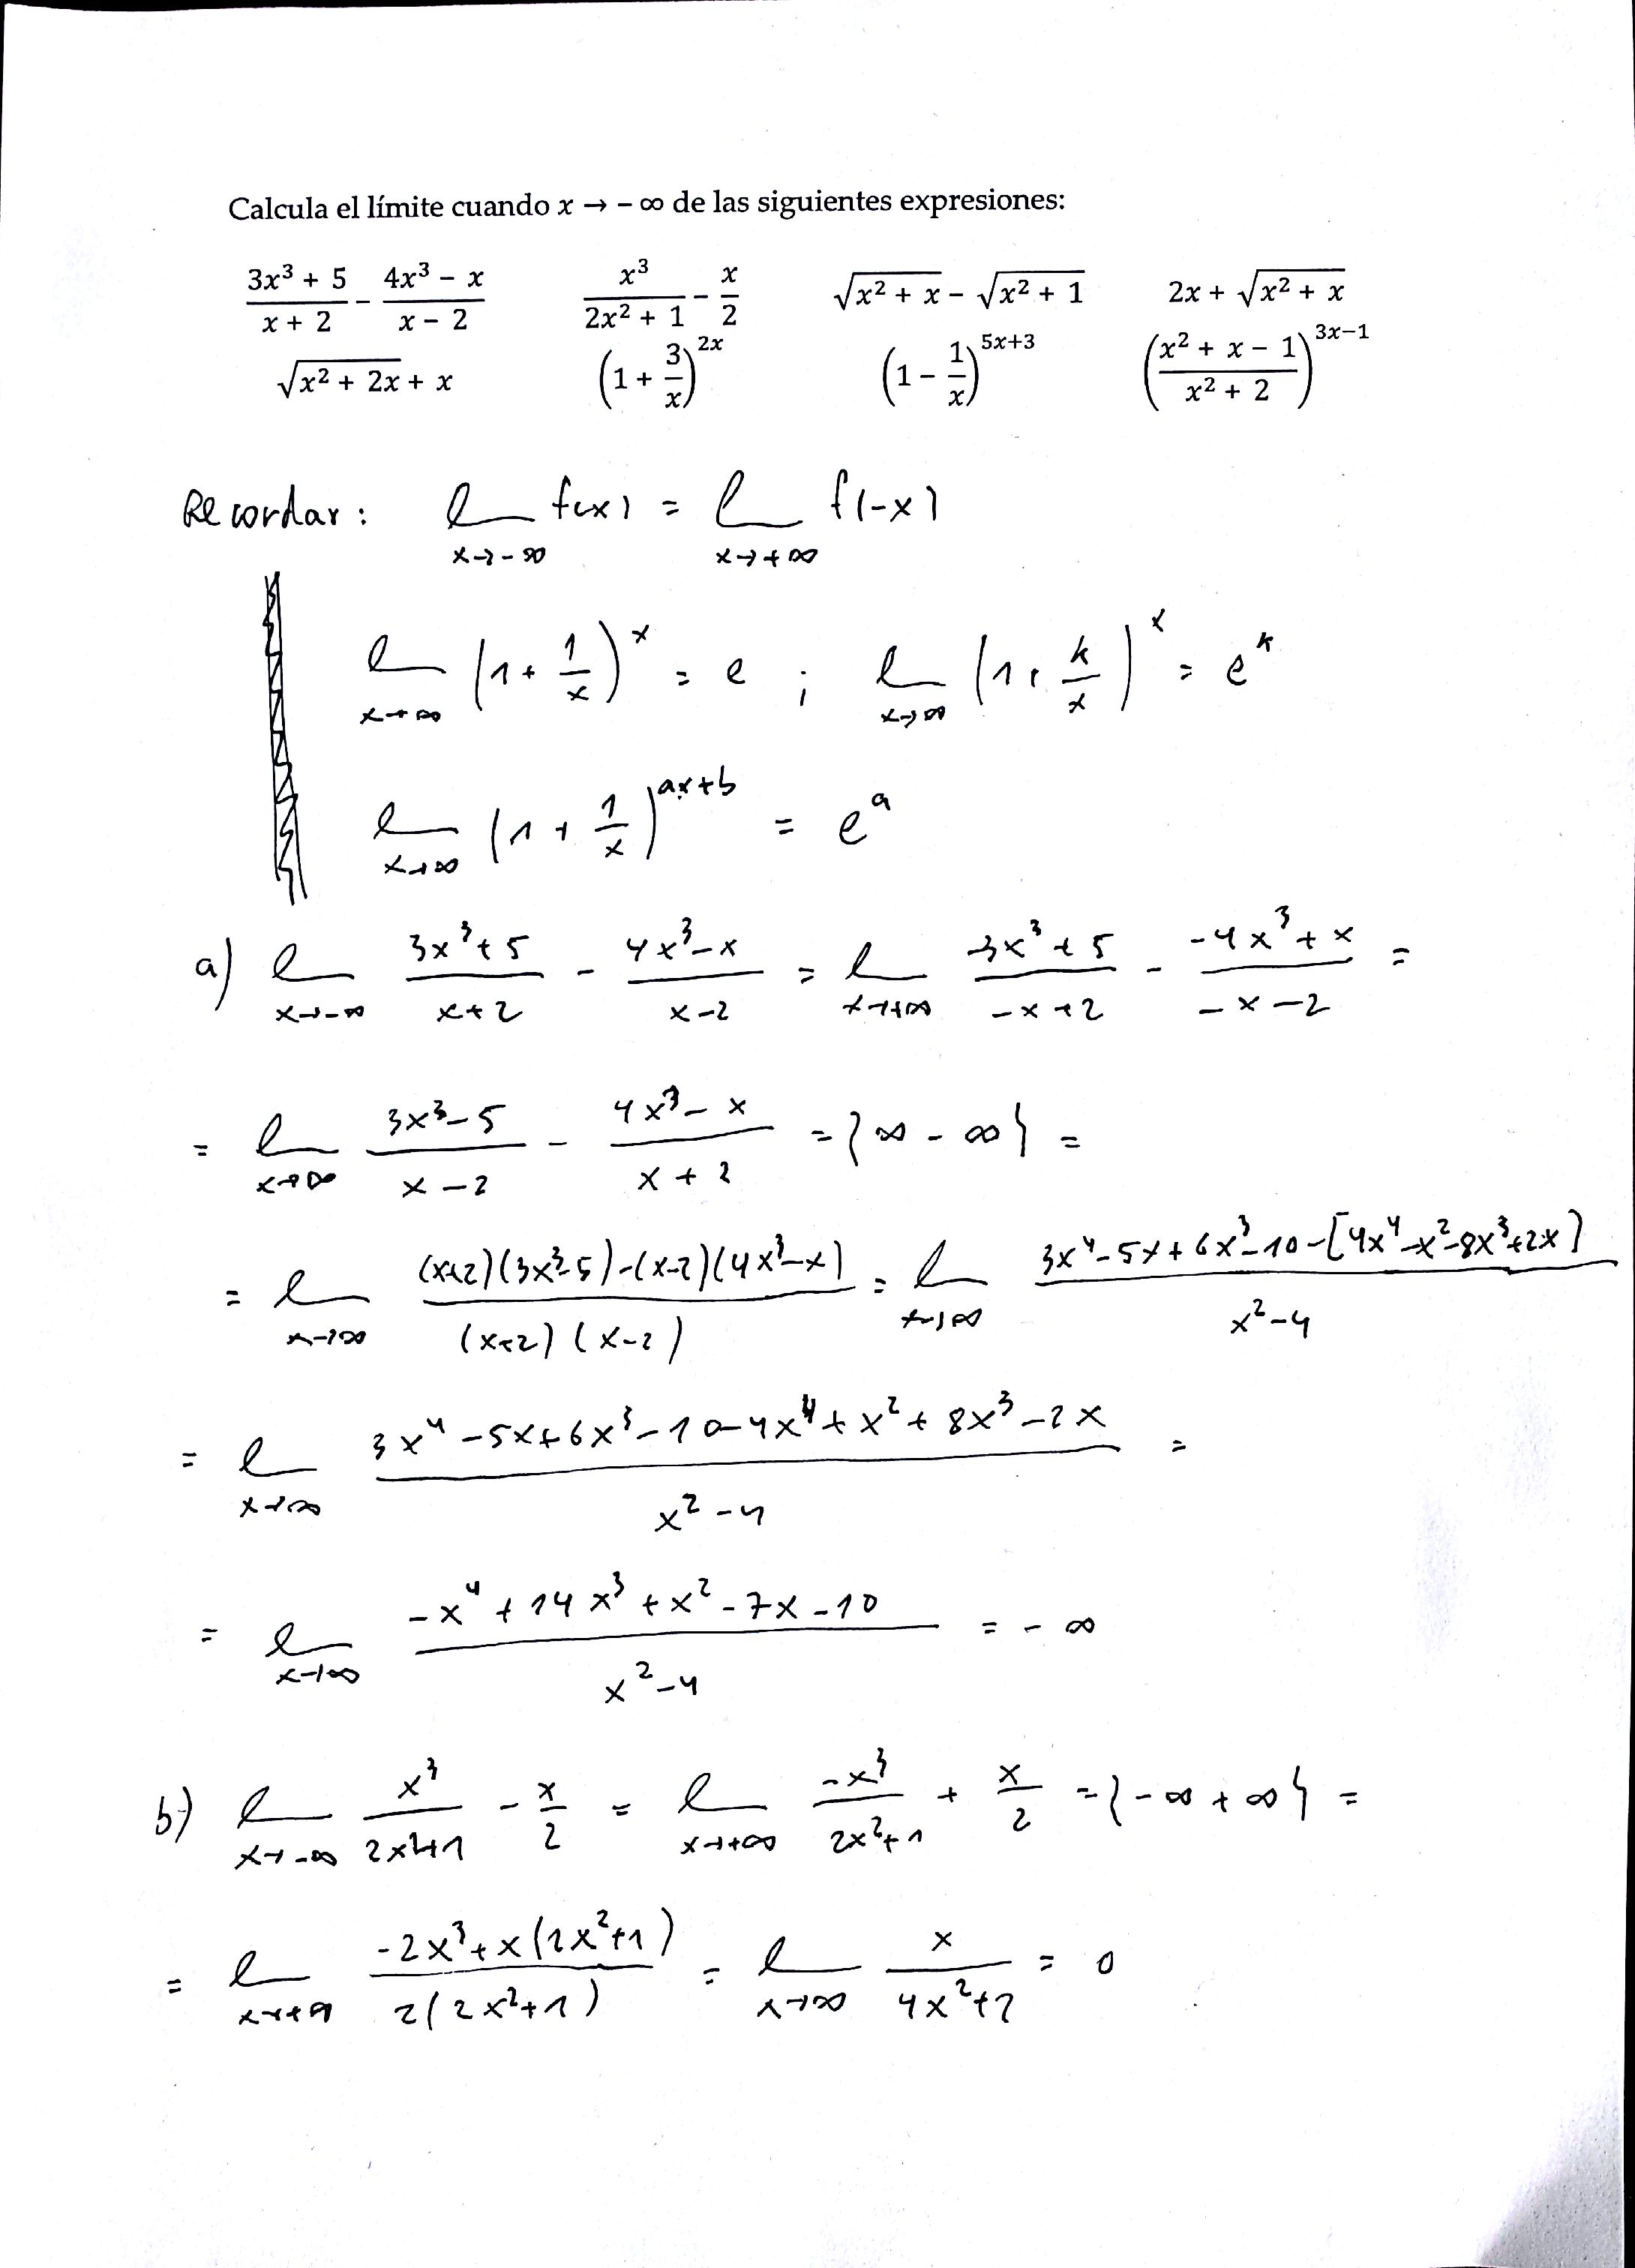 Calcula el límite cuando x → − ∞ de las siguientes expresiones:
(3x³ + 5)/(x + 2) − (4x³ − x)/(x − 2)   x³/(2x² + 1) − x/2   √(x² + x) − √(x² + 1)   2x + √(x² + x)
√(x² + 2x) + x   (1 + 3/x)^(2x)   (1 − 1/x)^(5x+3)   ((x² + x − 1)/(x² + 2))^(3x−1)
Recordar: l__ x→−∞ f(x) = l__ x→+∞ f(−x)
l__ x→∞ (1 + 1/x)^x = e ; l__ x→∞ (1 + k/x)^x = e^k
l__ x→∞ (1 + 1/x)^(ax+b) = e^a
a) l__ x→−∞ (3x³+5)/(x+2) − (4x³−x)/(x−2) = l__ x→+∞ (−3x³+5)/(−x+2) − (−4x³+x)/(−x−2) =
= l__ x→∞ (3x³−5)/(x−2) − (4x³−x)/(x+2) = {∞ − ∞} =
= l__ x→∞ ((x+2)(3x³−5)−(x−2)(4x³−x))/((x+2)(x−2)) = l__ x→∞ (3x⁴−5x+6x³−10−[4x⁴−x²−8x³+2x])/(x²−4)
= l__ x→∞ (3x⁴−5x+6x³−10−4x⁴+x²+8x³−2x)/(x²−4) =
= l__ x→∞ (−x⁴+14x³+x²−7x−10)/(x²−4) = −∞
b) l__ x→−∞ x³/(2x²+1) − x/2 = l__ x→+∞ −x³/(2x²+1) + x/2 = {−∞ + ∞} =
= l__ x→+∞ (−2x³+x(2x²+1))/(2(2x²+1)) = l__ x→∞ x/(4x²+2) = 0